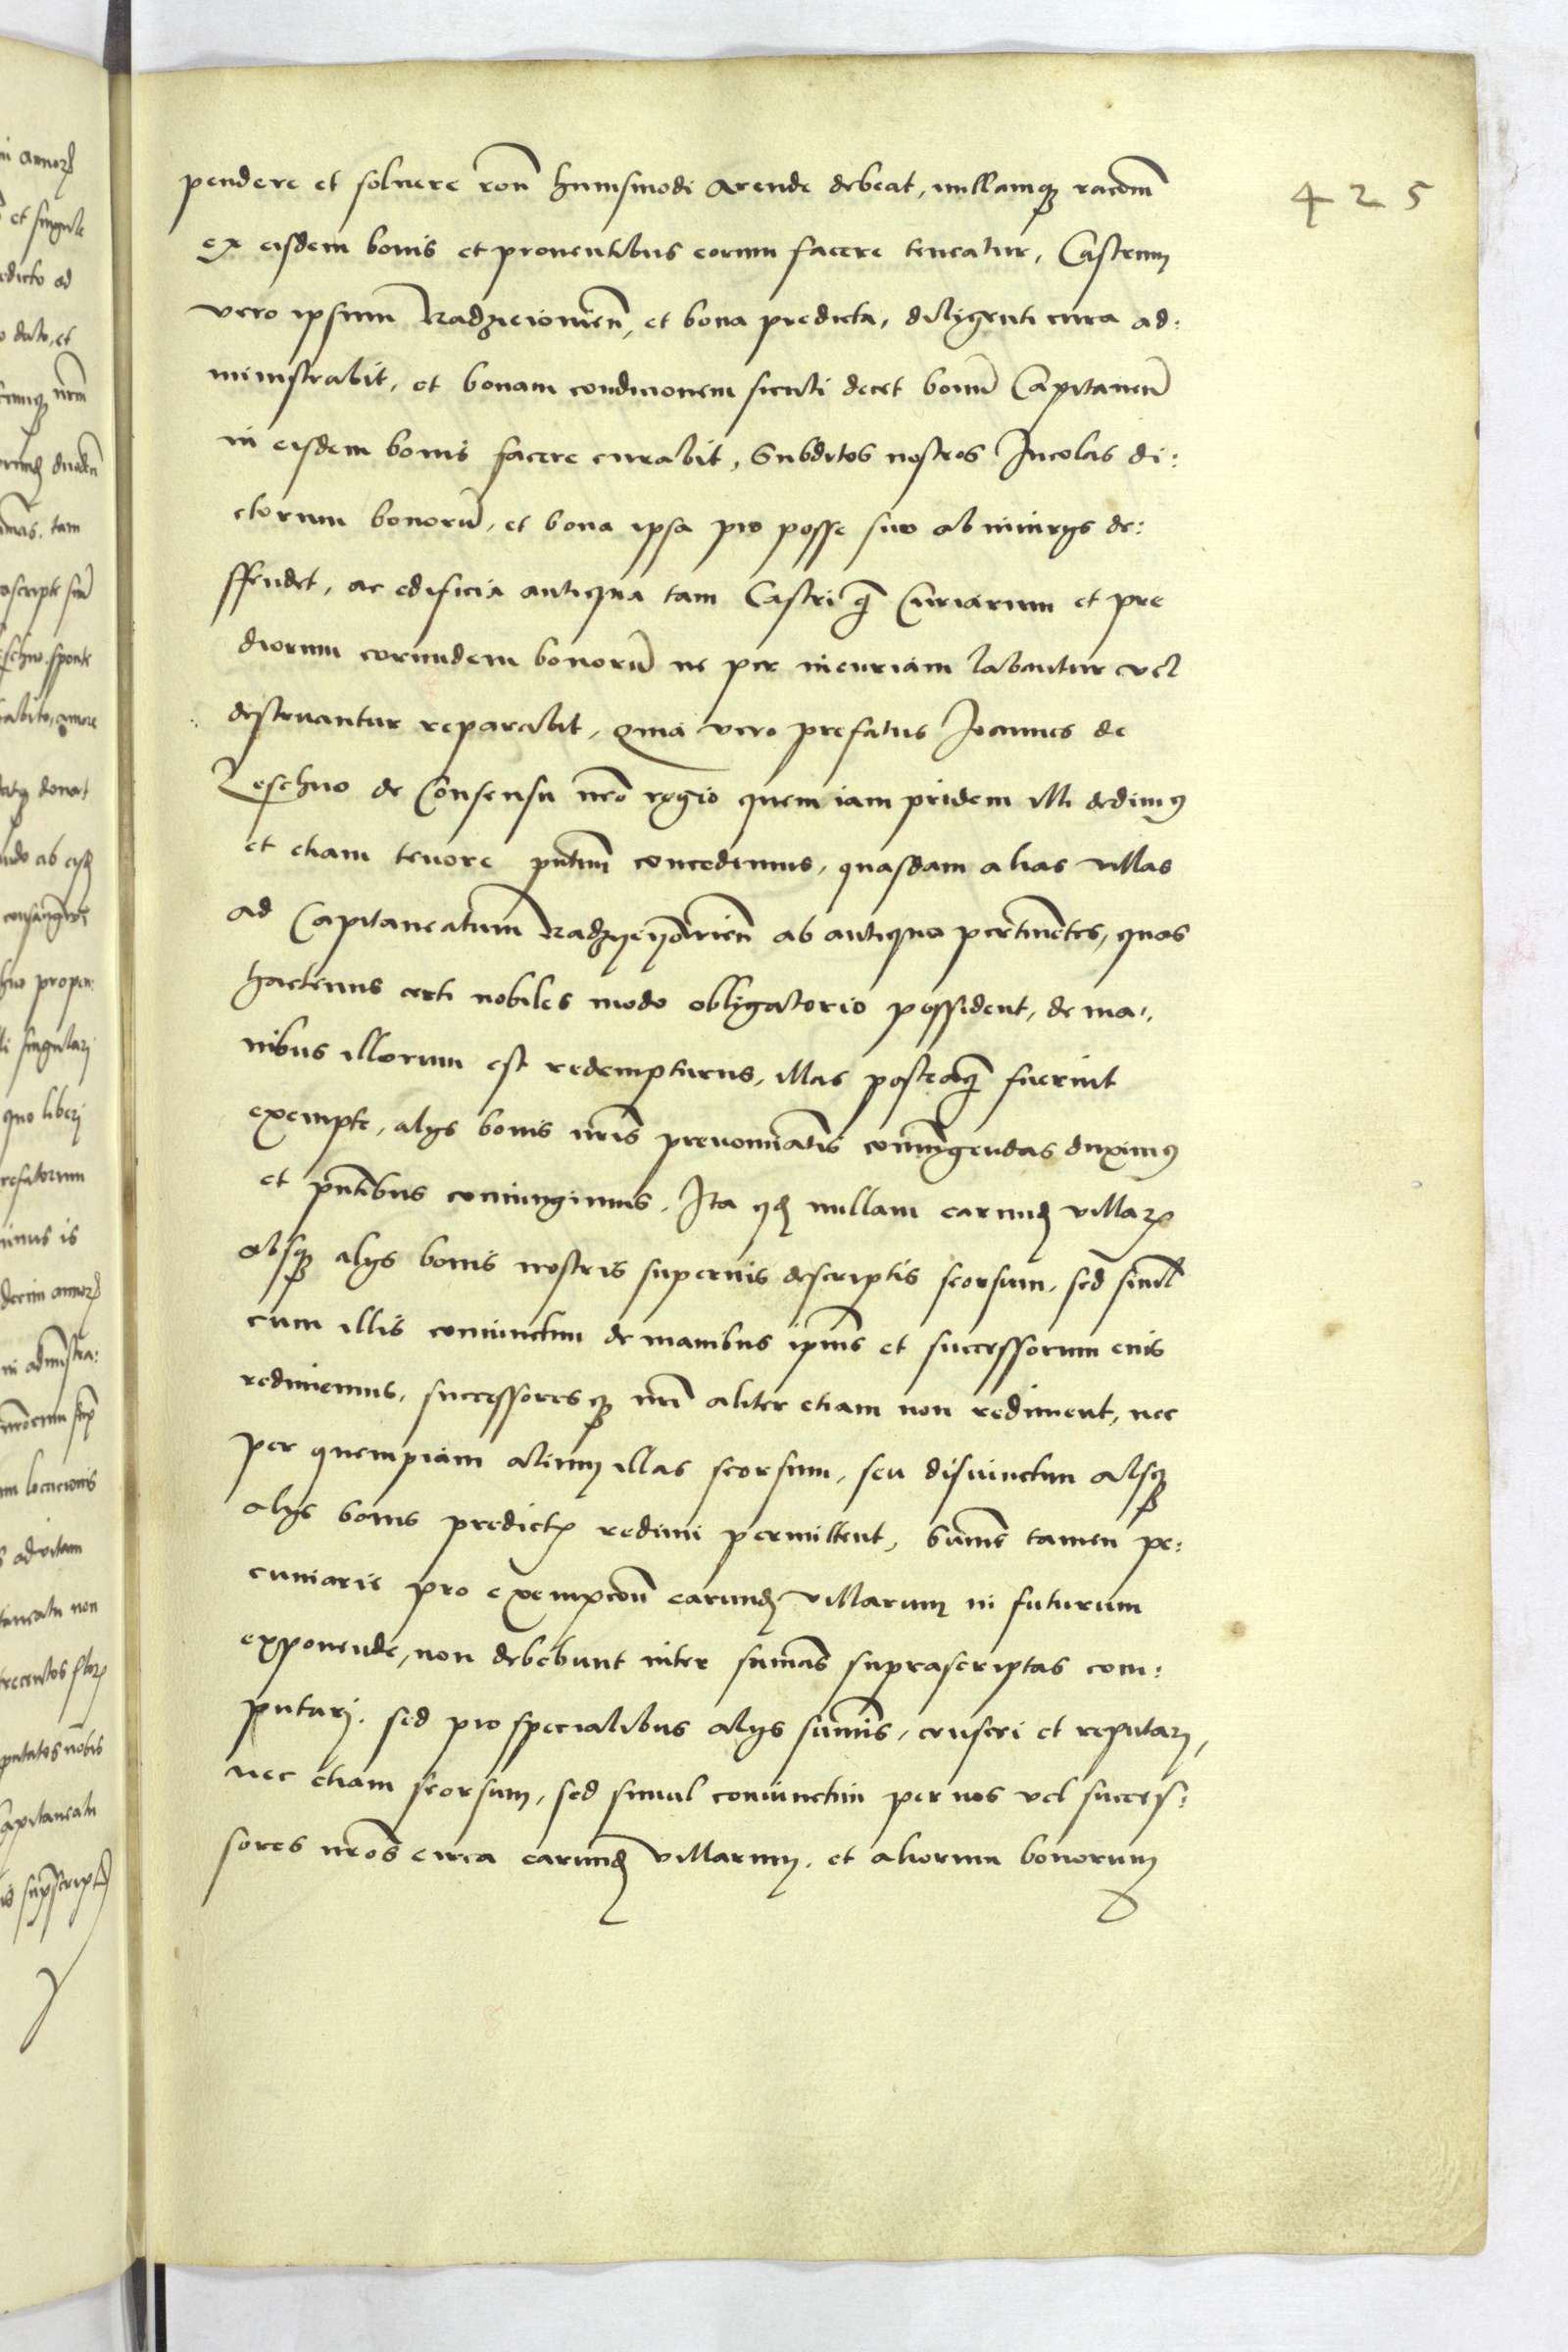 425
pendere et soluere ron̄ huiusmodi Arende debeat, nullamqz racōm̄
ex eisdem bonis et prouentibus eorum facere teneatur, Castrum
vero ipsum Radzieiouien̄, et bona predicta, diligenti cura ad:
ministrabit, et bonam condicionem sicuti decet bonū Capitaneū
in eisdem bonis facere curabit, Subditos nostros Incolas di:
ctorum bonorū, et bona ipsa pro posse suo ab iniurys de:
ffendet, ac edificia antiqua tam Castri q̄ Curiarum et pre
diorum eorundem bonorū ne per incuriam labantur vel
destruantur reparabit, Quia vero prefatus Joannes de
Leschno de Consensu nr̄o regio quem iam pridem illi dedimꝰ
et etiam tenore pn̄tium concedimus, quasdam alias villas
ad Capitaneatum Radzyeyouien̄ ab antiquo pertinētes, quas
hactenus certi nobiles modo obligatorio possident, de ma:
nibus illorum est redempturus, illas posteaq̄ fuerint
exempte, alys bonis nr̄is prenominatis coniūgendas duximꝰ
et pn̄tibus coniungimus, Ita qd̄ nullam earund̄ villaꝝ
absqz alys bonis nostris superius descriptis seorsum, sed simul
cum illis coniunctim de manibus ipius et successorum eius
redimemus, successoresqz nr̄i aliter etiam non rediment, nec
per quempiam alium illas seorsum, seu disiunctim absqz
alys bonis predictꝭ redimi permittent, Sum̄e tamen pe:
cuniarie pro exempcōn̄ earund̄ villarum in futurum
exponende, non debebunt inter sum̄as suprascriptas com:
putari, sed pro specialibus alys sum̄is, censeri et reputari,
nec etiam seorsum, sed simul coniunctim per nos vel succes:
sores nr̄os circa earund̄ villarum, et aliorum bonorum